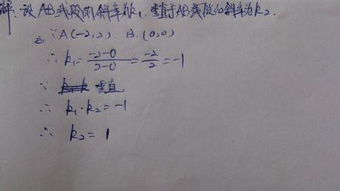 解: 设AB线段的斜率k₁, 垂直于AB线段的斜率为k₂.
∵ A(-2,2) B.(0,0)
∴ k₁ = \frac{-2-0}{2-0} = \frac{-2}{2} = -1
∵ 垂直
∴ k₁·k₂=-1
∴ k₂= 1